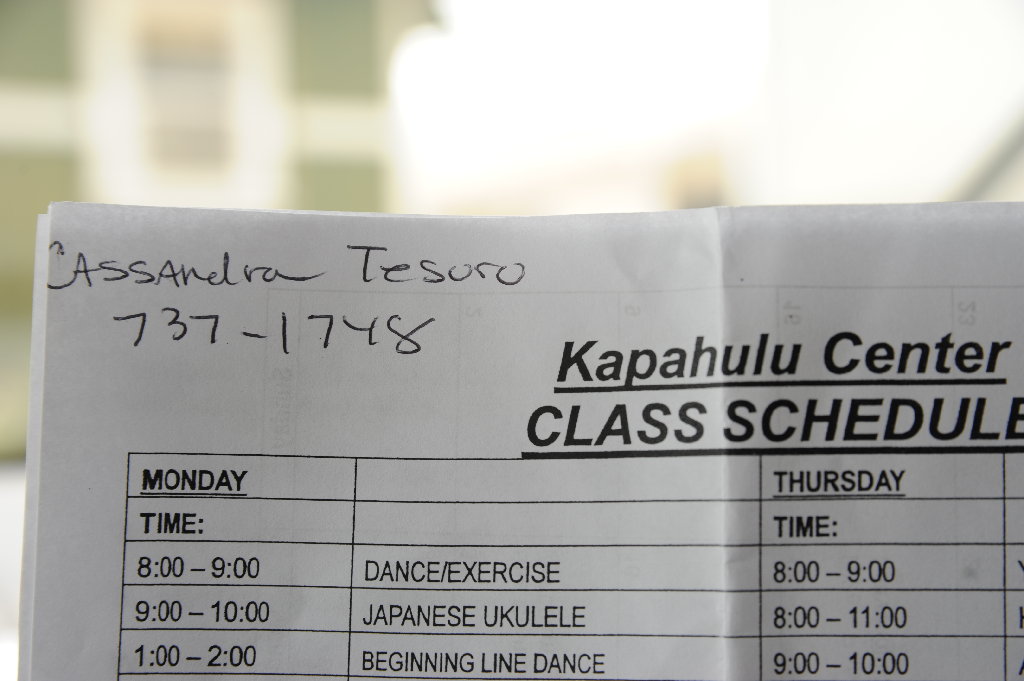 Cassandra Tesoro
737-1748
Kapahulu Center
CLASS SCHEDULE
MONDAY THURSDAY
TIME: TIME:
8:00 – 9:00 DANCE/EXERCISE 8:00 – 9:00
9:00 – 10:00 JAPANESE UKULELE 8:00 – 11:00
1:00 – 2:00 BEGINNING LINE DANCE 9:00 – 10:00